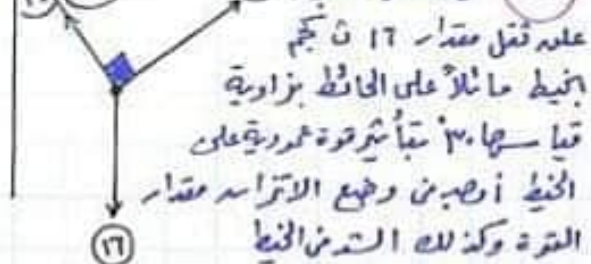 علق ثقل مقدار ١٦ ث كجم
بخيط مائلاً على الحائط بزاوية
قياسها ٣٠° بتأثير قوة عمودية على
الخيط أوجد في وضع الاتزان مقدار
القوة وكذلك الشد في الخيط
١٦